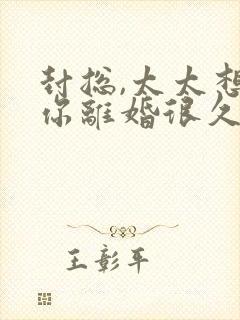 封總,太太想
你離婚很久
王彰平